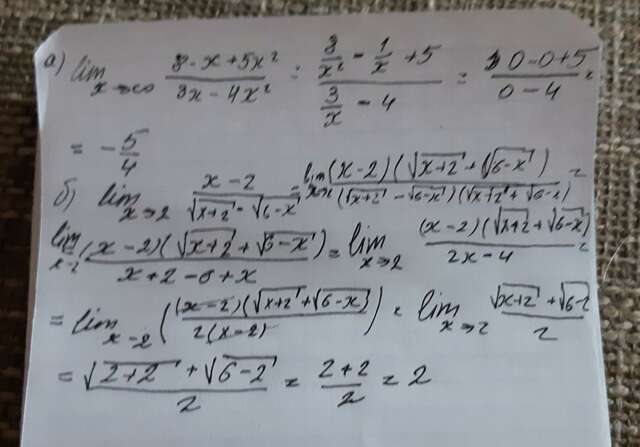 а) lim x→∞ (8-x+5x²)/(3x-4x²) = (8/x² - 1/x + 5)/(3/x - 4) = (0-0+5)/(0-4) =
= -5/4
б) lim x→2 (x-2)/(√(x+2) - √(6-x)) = lim x→2 (x-2)(√(x+2) + √(6-x))/((√(x+2) - √(6-x))(√(x+2) + √(6-x))) =
lim x→2 (x-2)(√(x+2) + √(6-x))/(x+2-6+x) = lim x→2 (x-2)(√(x+2) + √(6-x))/(2x-4) =
= lim x→2 ((x-2)(√(x+2) + √(6-x))/(2(x-2))) = lim x→2 (√(x+2) + √(6-)/2
= (√(2+2) + √(6-2))/2 = (2+2)/2 = 2